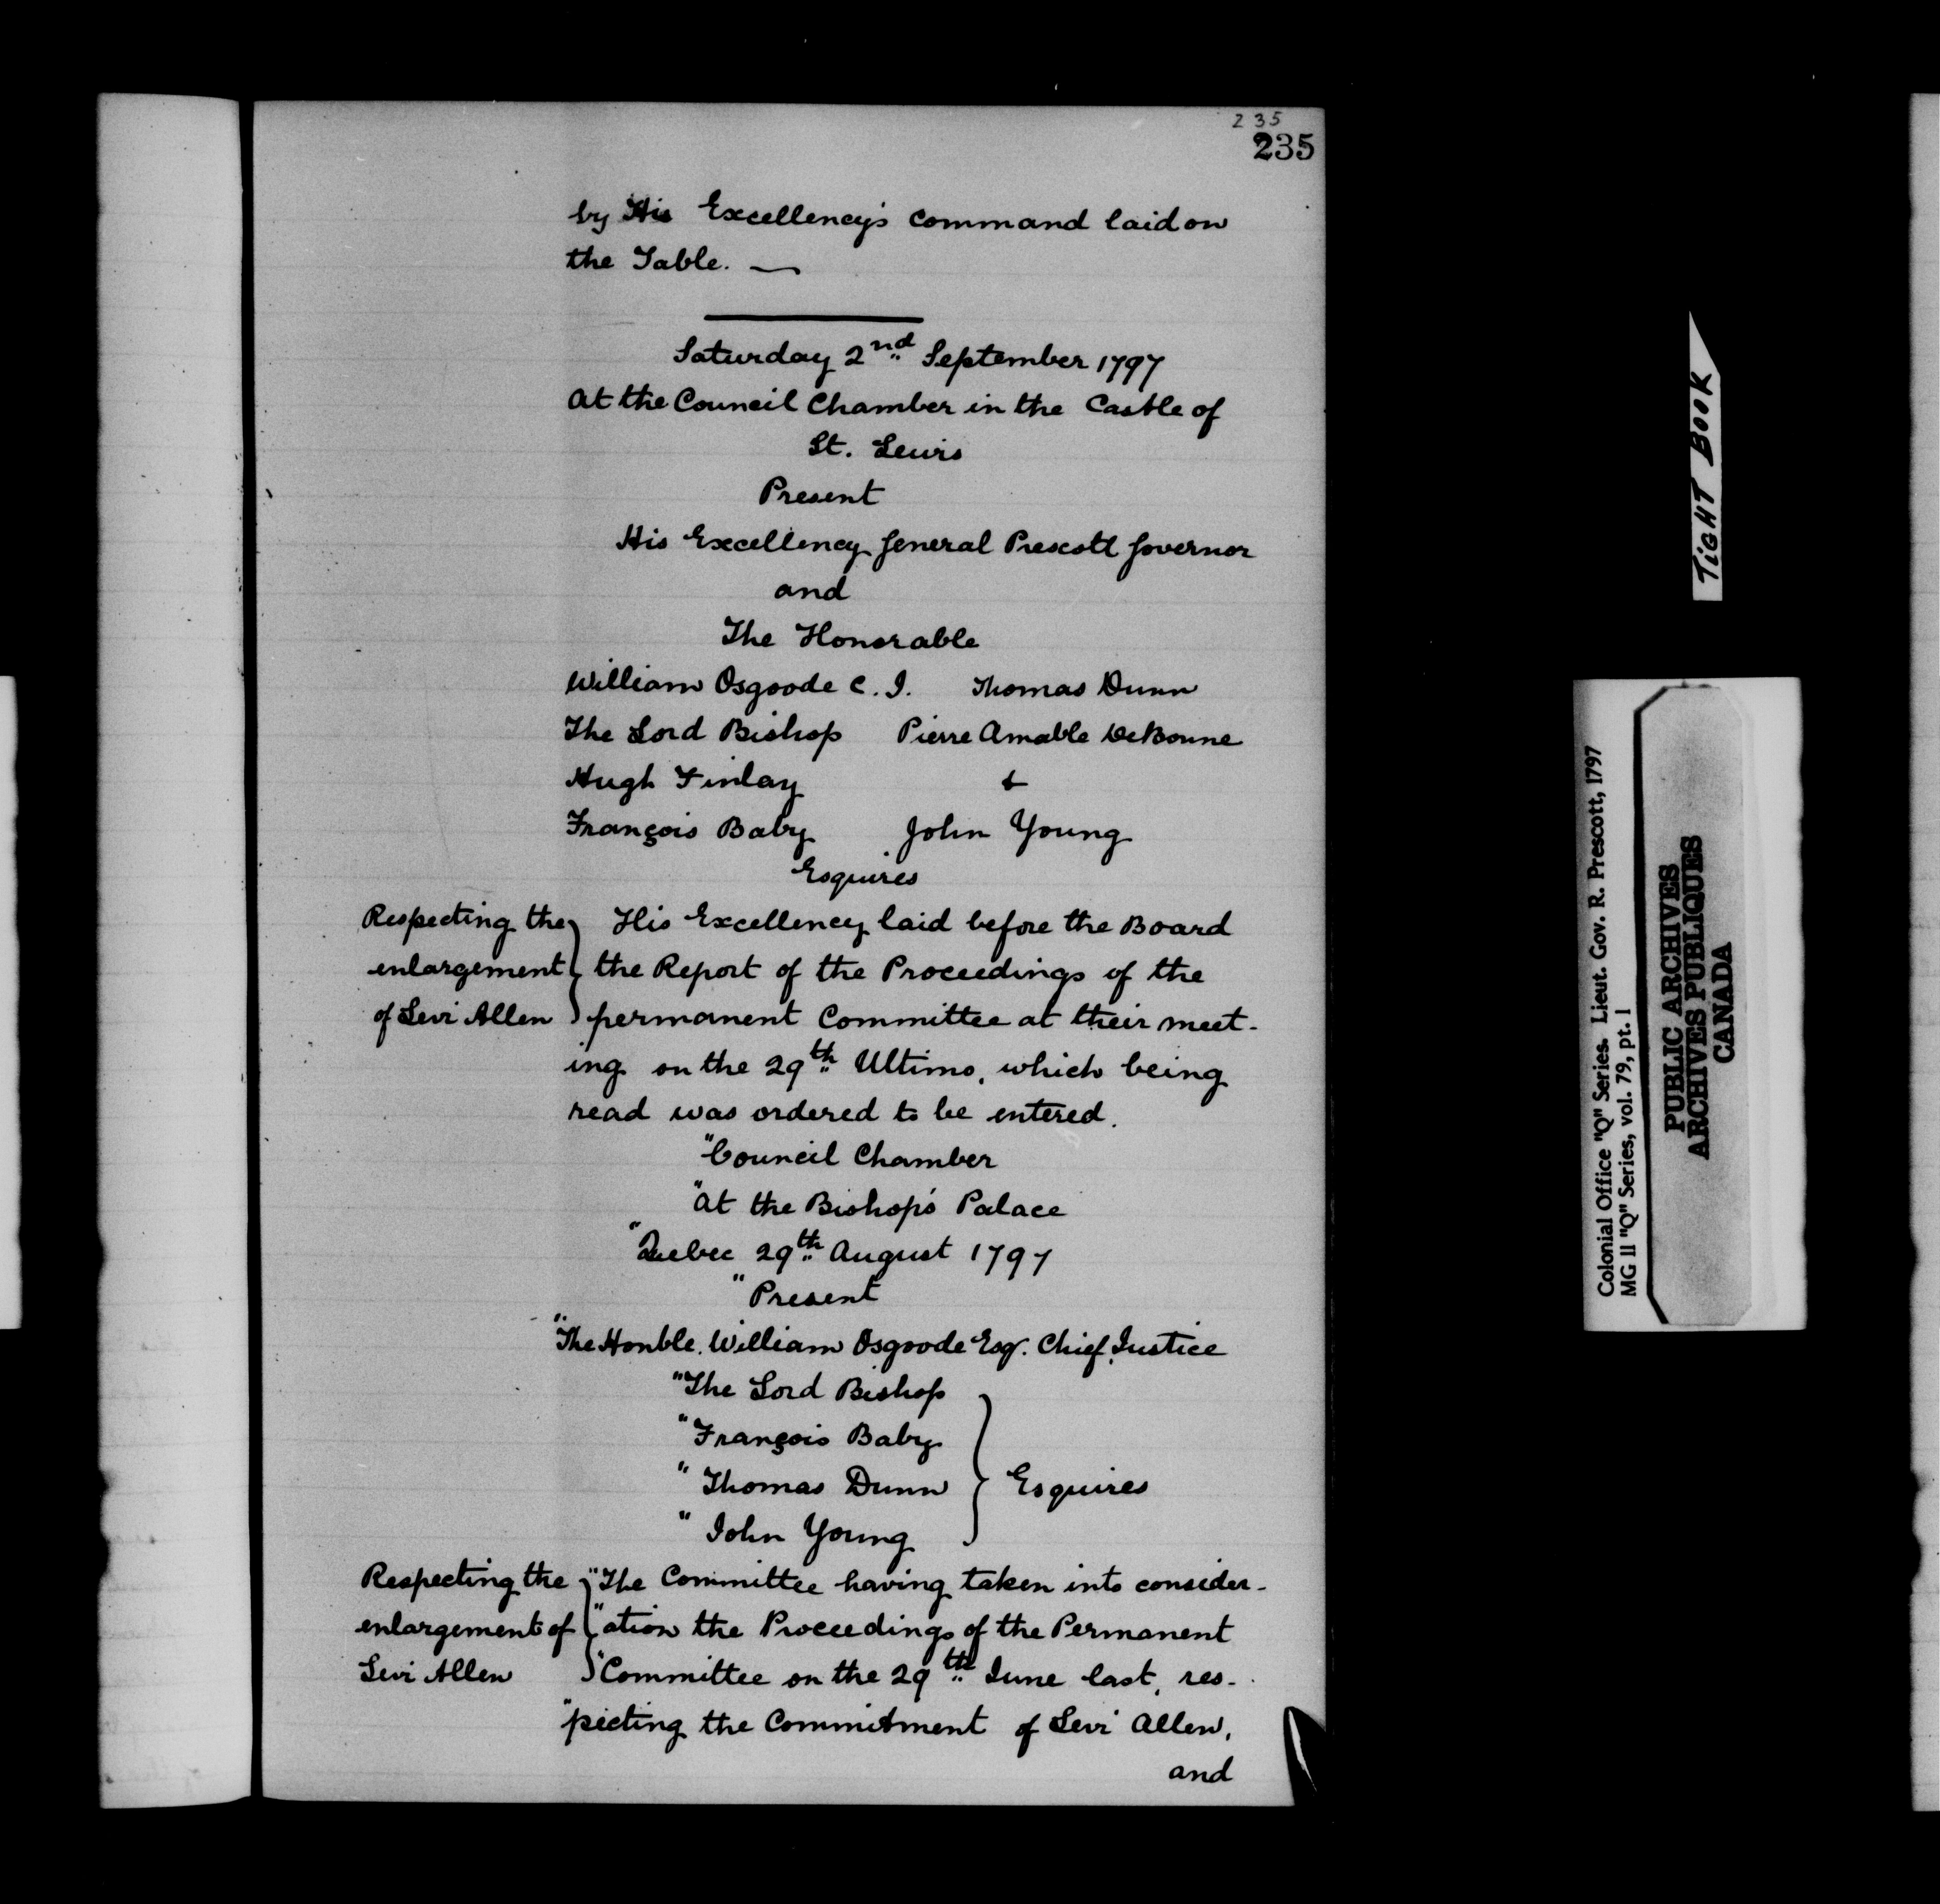 235
235
by His Excellency's command laid on
the Table. —
Saturday 2nd September 1797
At the Council Chamber in the Castle of
St. Lewis
Present
His Excellency General Prescott Governor
and
The Honorable
William Osgoode C. J. Thomas Dunn
The Lord Bishop Pierre Amable DeBonne
Hugh Finlay &
François Baby John Young
Esquires
Respecting the } His Excellency laid before the Board
enlargement } the Report of the Proceedings of the
of Levi Allen } permanent Committee at their meet-
ing on the 29th Ultimo, which being
read was ordered to be entered.
"Council Chamber
"At the Bishop's Palace
"Quebec 29th August 1797
"Present
"The Honble. William Osgoode Esqr. Chief Justice
"The Lord Bishop
"François Baby
"Thomas Dunn } Esquires
"John Young
Respecting the } "The Committee having taken into consider-
enlargement of } "ation the Proceedings of the Permanent
Levi Allen } "Committee on the 29th June last, res-
"pecting the Commitment of Levi Allen,
and
TIGHT BOOK
Colonial Office "Q" Series. Lieut. Gov. R. Prescott, 1797
MG 11 "Q" Series, vol. 79, pt. 1
PUBLIC ARCHIVES
ARCHIVES PUBLIQUES
CANADA